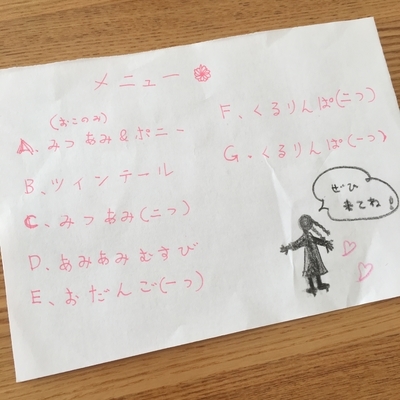 メニュー
(おこのみ)
A、みつあみ&ポニー
B、ツインテール
C、みつあみ(二つ)
D、あみあみむすび
E、おだんご(一つ)
F、くるりんぱ(二つ)
G、くるりんぱ(一つ)
ぜひ
来てね!